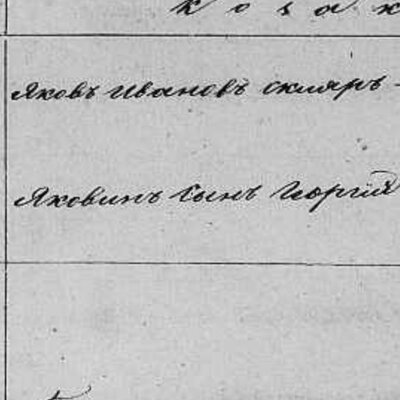 К о з а к
Яковъ Ивановъ скляръ -
Яковинъ Сынъ Георгій